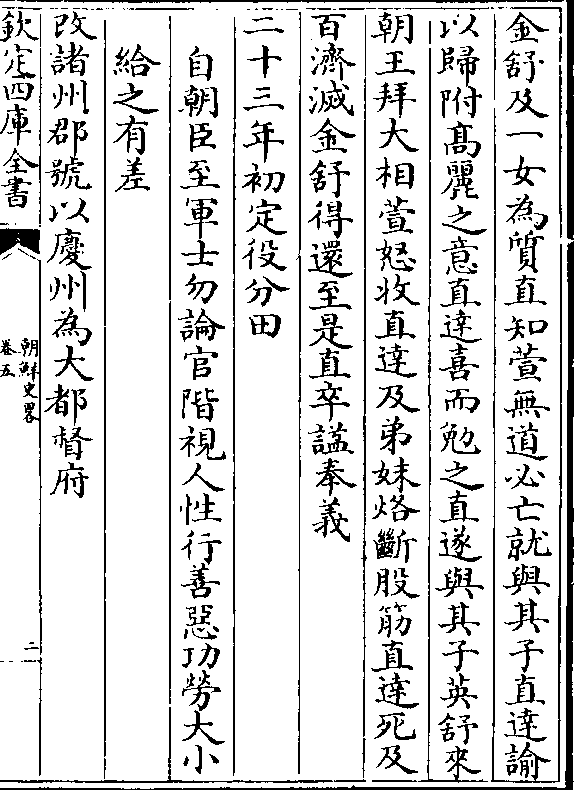 金舒及一女為質直知萱無道必亡就與其子直達諭
以歸附髙麗之意直達喜而勉之直遂與其子英舒來
朝王拜大相萱怒收直達及弟妹烙斷股筋直達死及
百濟滅金舒得還至是直卒諡奉義
二十三年初定役分田
自朝臣至軍士勿論官階視人性行善惡功勞大小
給之有差
改諸州郡號以慶州為大都督府
欽定四庫全書
朝鮮史畧
卷五
二